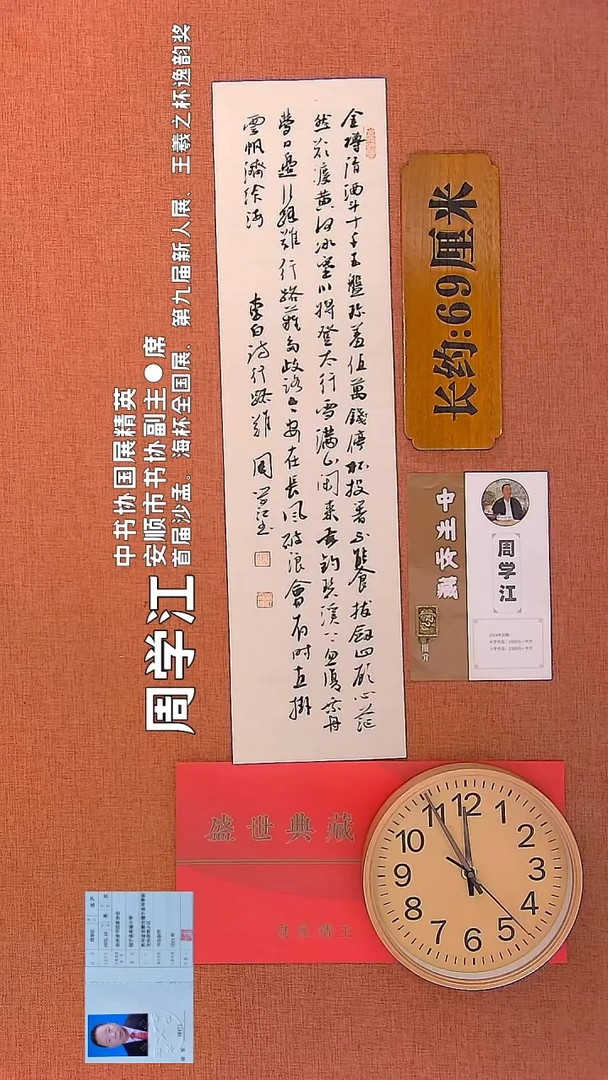 周学江
中书协国展精英
安顺市书协副主●席
首届沙孟。海杯全国展、第九届新人展、王羲之杯逸韵奖
金樽清酒斗十千玉盤珍羞值萬錢停杯投箸不能食拔劍四顧心茫
然欲渡黄河冰塞川將登太行雪满山闲来垂釣碧溪上忽復乘舟
夢日邊行路難行路難多歧路今安在長風破浪會有时直掛
雲帆濟滄海
李白詩行路難 周学江書
长约:69厘米
中生收藏
简介
周学江
盛世典藏
12
1
2
3
4
5
6
7
8
9
10
11